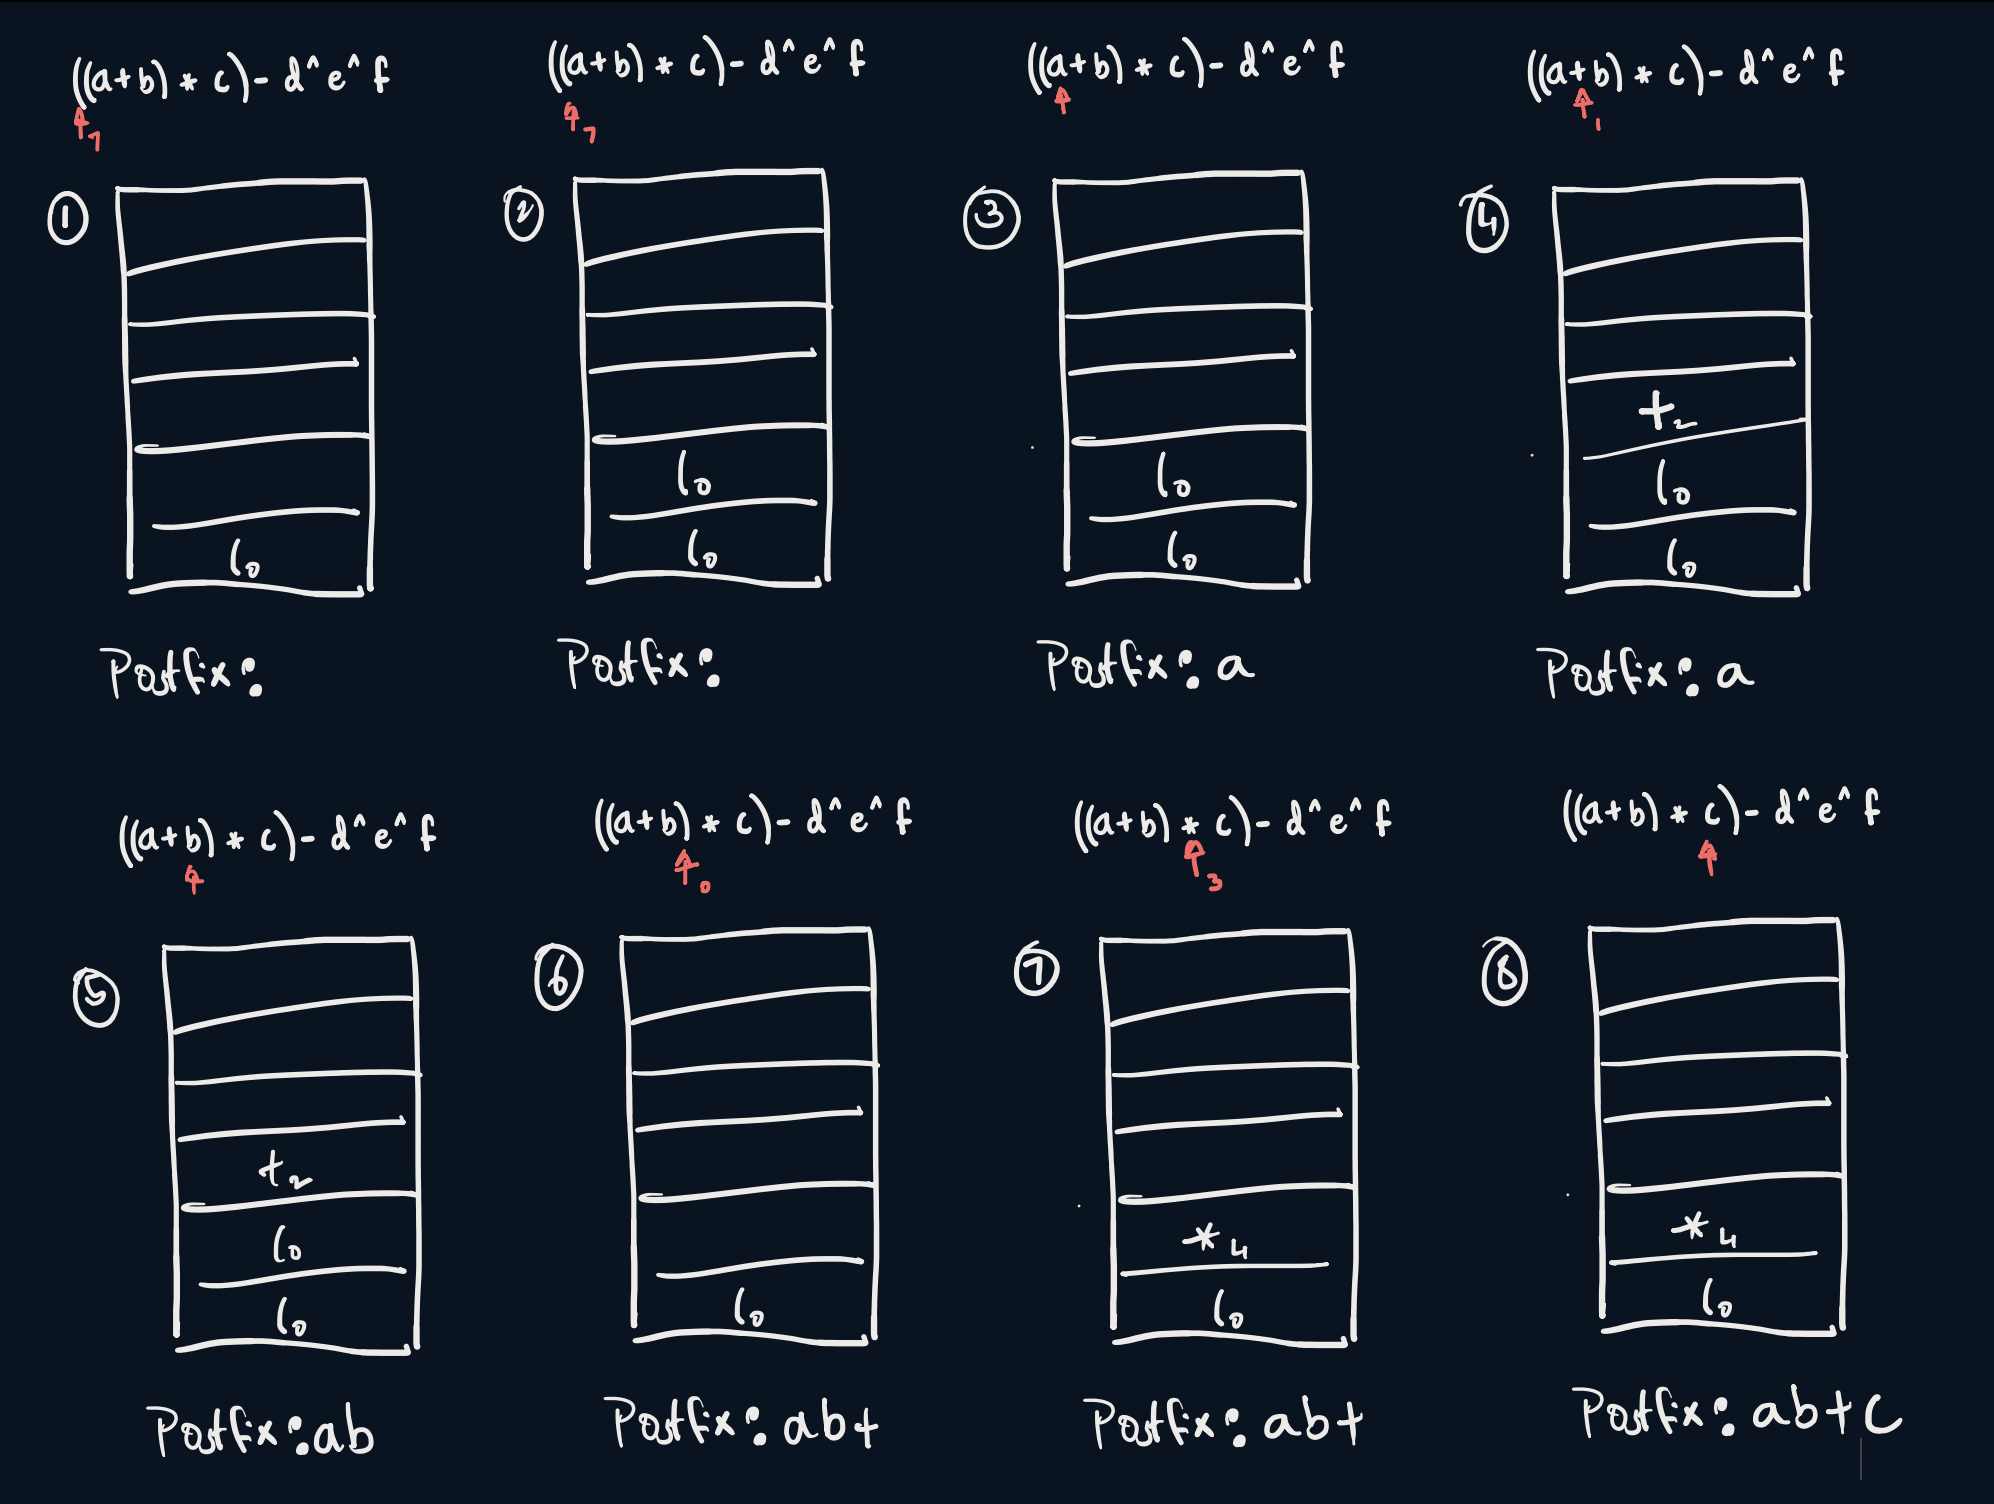 ((a+b) * c) - d^ e^ f
7
1
(0
Postfix:
((a+b) * c) - d^ e^ f
7
2
(0
(0
Postfix:
((a+b) * c) - d^ e^ f
3
(0
(0
Postfix: a
((a+b) * c) - d^ e^ f
1
4
+2
(0
(0
Postfix: a
((a+b) * c) - d^ e^ f
5
+2
(0
(0
Postfix: ab
((a+b) * c) - d^ e^ f
0
6
(0
Postfix: ab+
((a+b) * c) - d^ e^ f
3
7
*4
(0
Postfix: ab+
((a+b) * c) - d^ e^ f
8
*4
(0
Postfix: ab+c